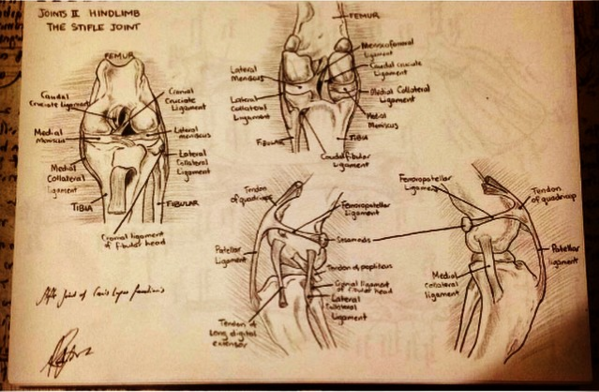 JOINTS II HINDLIMB
THE STIFLE JOINT
FEMUR
Caudal
Cruciate ligament
Cranial
Cruciate
Ligament
Medial
Meniscus
Lateral meniscus
Medial
Collateral
ligament
Lateral
Collateral
Ligament
TIBIA
FIBULAR
Cranial ligament
of fibular head
FEMUR
Lateral
Meniscus
Meniscofemoral
ligament
Caudal cruciate
Ligament
Lateral
Collateral
Ligament
Medial Collateral
Ligament
Medial
Meniscus
Fibular
Tibia
Caudal fibular
Ligament
Tendon
of quadriceps
Femoropatellar
Ligament
Patellar
Ligament
Sesamoids
Tendon of popliteus
Cranial ligament
of fibular head
Lateral
Collateral
ligament
Tendon of
Long digital
extensor
Femoropatellar
Ligament
Tendon
of quadricep
Patellar
ligament
Medial
Collateral
ligament
Stifle Joint of Canis lupus familiaris